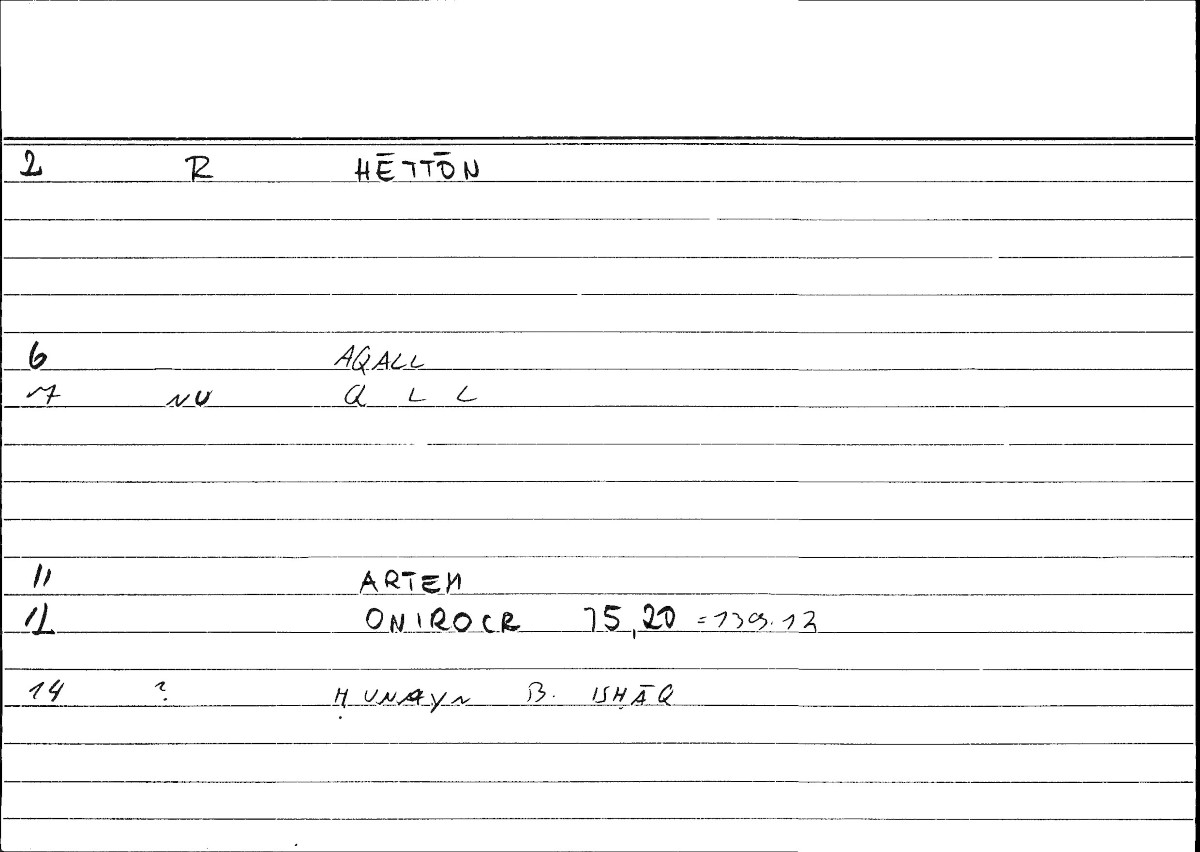 2 R HĒTTŌN
6 AQALL
7 NU Q L L
11 ARTEM
12 ONIROCR 75,20 =139.12
14 ? ḤUNAYN B. ISḤĀQ